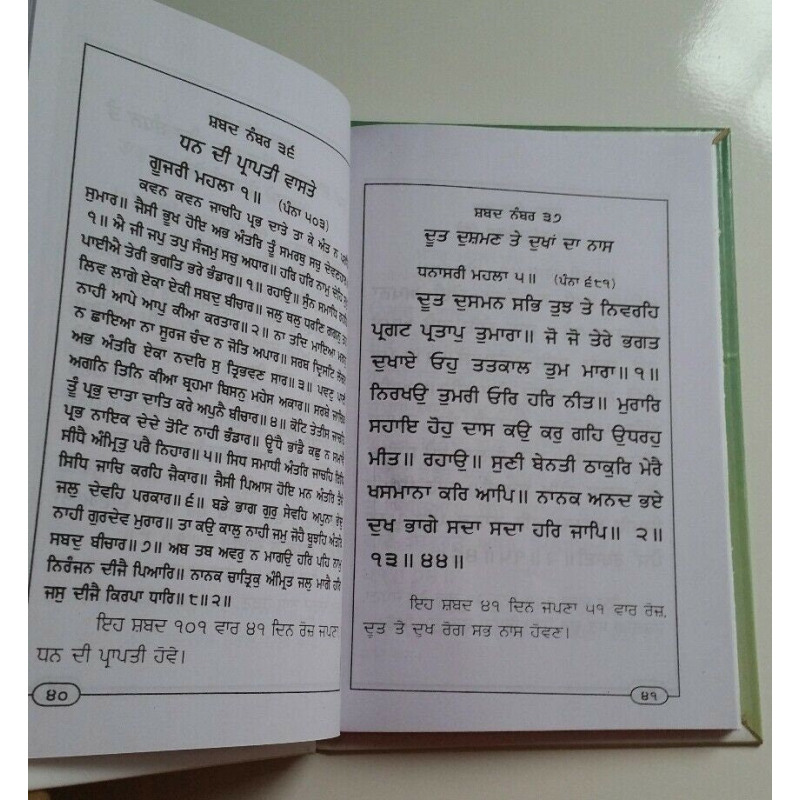 ਸ਼ਬਦ ਨੰਬਰ ੩੬
ਧਨ ਦੀ ਪ੍ਰਾਪਤੀ ਵਾਸਤੇ
ਗੂਜਰੀ ਮਹਲਾ ੧॥ (ਪੰਨਾ ੫੦੩)
ਕਵਨ ਕਵਨ ਜਾਚਹਿ ਪ੍ਰਭ ਦਾਤੇ ਤਾ ਕੇ ਅੰਤ ਨ
ਸੁਮਾਰ॥ ਜੈਸੀ ਭੂਖ ਹੋਇ ਅਭ ਅੰਤਰਿ ਤੂੰ ਸਮਰਥੁ ਸਚੁ
੧॥ ਐ ਜੀ ਜਪੁ ਤਪੁ ਸੰਜਮੁ ਸਚੁ ਅਧਾਰ॥ ਹਰਿ ਹਰਿ ਨਾਮੁ ਦੇਹਿ
ਪਾਈਐ ਤੇਰੀ ਭਗਤਿ ਭਰੇ ਭੰਡਾਰ॥੧॥ ਰਹਾਉ॥ ਸੁੰਨ ਸਮਾਧਿ
ਲਿਵ ਲਾਗੇ ਏਕਾ ਏਕੀ ਸਬਦੁ ਬੀਚਾਰ॥ ਜਲੁ ਥਲੁ ਧਰਣਿ ਗਗਨੁ
ਨਾਹੀ ਆਪੇ ਆਪੁ ਕੀਆ ਕਰਤਾਰ॥੨॥ ਨਾ ਤਦਿ ਮਾਇਆ
ਨ ਛਾਇਆ ਨਾ ਸੂਰਜ ਚੰਦ ਨ ਜੋਤਿ ਅਪਾਰ॥ ਸਰਬ ਦ੍ਰਿਸਟਿ
ਅਭ ਅੰਤਰਿ ਏਕਾ ਨਦਰਿ ਸੁ ਤ੍ਰਿਭਵਣ ਸਾਰ॥੩॥ ਪਵਣੁ
ਅਗਨਿ ਤਿਨਿ ਕੀਆ ਬ੍ਰਹਮਾ ਬਿਸਨੁ ਮਹੇਸ ਅਕਾਰ॥ ਸਰਬੇ
ਤੂੰ ਪ੍ਰਭੁ ਦਾਤਾ ਦਾਤਿ ਕਰੇ ਅਪੁਨੈ ਬੀਚਾਰ॥੪॥ ਕੋਟਿ ਤੇਤੀਸ ਜਾਚਹਿ
ਪ੍ਰਭ ਨਾਇਕ ਦੇਦੇ ਤੋਟਿ ਨਾਹੀ ਭੰਡਾਰ॥ ਊਂਧੈ ਭਾਂਡੈ ਕਛੁ ਨ ਸਮਾਵੈ
ਸੀਧੈ ਅੰਮ੍ਰਿਤੁ ਪਰੈ ਨਿਹਾਰ॥੫॥ ਸਿਧ ਸਮਾਧੀ ਅੰਤਰਿ ਜਾਚਹਿ ਰਿਧਿ
ਸਿਧਿ ਜਾਚਿ ਕਰਹਿ ਜੈਕਾਰ॥ ਜੈਸੀ ਪਿਆਸ ਹੋਇ ਮਨ ਅੰਤਰਿ ਤੈਸੋ
ਜਲੁ ਦੇਵਹਿ ਪਰਕਾਰ॥੬॥ ਬਡੇ ਭਾਗ ਗੁਰੁ ਸੇਵਹਿ ਅਪੁਨਾ ਭੇਦੁ
ਨਾਹੀ ਗੁਰਦੇਵ ਮੁਰਾਰ॥ ਤਾ ਕਉ ਕਾਲੁ ਨਾਹੀ ਜਮੁ ਜੋਹੈ ਬੂਝਹਿ ਅੰਤਰਿ
ਸਬਦੁ ਬੀਚਾਰ॥੭॥ ਅਬ ਤਬ ਅਵਰੁ ਨ ਮਾਗਉ ਹਰਿ ਪਹਿ ਨਾਮੁ
ਨਿਰੰਜਨ ਦੀਜੈ ਪਿਆਰਿ॥ ਨਾਨਕ ਚਾਤ੍ਰਿਕੁ ਅੰਮ੍ਰਿਤ ਜਲੁ ਮਾਗੈ ਹਰਿ
ਜਸੁ ਦੀਜੈ ਕਿਰਪਾ ਧਾਰਿ॥੮॥੨॥
ਇਹ ਸ਼ਬਦ ੧੦੧ ਵਾਰ ੪੧ ਦਿਨ ਰੋਜ਼ ਜਪਣਾ
ਧਨ ਦੀ ਪ੍ਰਾਪਤੀ ਹੋਵੇ।
੪੦
ਸ਼ਬਦ ਨੰਬਰ ੩੭
ਦੂਤ ਦੁਸ਼ਮਣ ਤੇ ਦੁਖਾਂ ਦਾ ਨਾਸ
ਧਨਾਸਰੀ ਮਹਲਾ ੫॥ (ਪੰਨਾ ੬੮੧)
ਦੂਤ ਦੁਸਮਨ ਸਭਿ ਤੁਝ ਤੇ ਨਿਵਰਹਿ
ਪ੍ਰਗਟ ਪ੍ਰਤਾਪੁ ਤੁਮਾਰਾ॥ ਜੋ ਜੋ ਤੇਰੇ ਭਗਤ
ਦੁਖਾਏ ਓਹੁ ਤਤਕਾਲ ਤੁਮ ਮਾਰਾ॥੧॥
ਨਿਰਖਉ ਤੁਮਰੀ ਓਰਿ ਹਰਿ ਨੀਤ॥ ਮੁਰਾਰਿ
ਸਹਾਇ ਹੋਹੁ ਦਾਸ ਕਉ ਕਰੁ ਗਹਿ ਉਧਰਹੁ
ਮੀਤ॥ ਰਹਾਉ॥ ਸੁਣੀ ਬੇਨਤੀ ਠਾਕੁਰਿ ਮੇਰੈ
ਖਸਮਾਨਾ ਕਰਿ ਆਪਿ॥ ਨਾਨਕ ਅਨਦ ਭਏ
ਦੁਖ ਭਾਗੇ ਸਦਾ ਸਦਾ ਹਰਿ ਜਾਪਿ॥ ੨॥
੧੩॥੪੪॥
ਇਹ ਸ਼ਬਦ ੪੧ ਦਿਨ ਜਪਣਾ ੫੧ ਵਾਰ ਰੋਜ਼.
ਦੂਤ ਤੇ ਦੁਖ ਰੋਗ ਸਭ ਨਾਸ ਹੋਵਣ।
੪੧